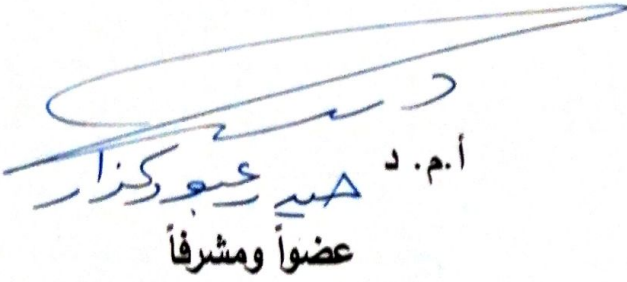 أ.م. د
حيدر عبود كزار
عضواً ومشرفاً